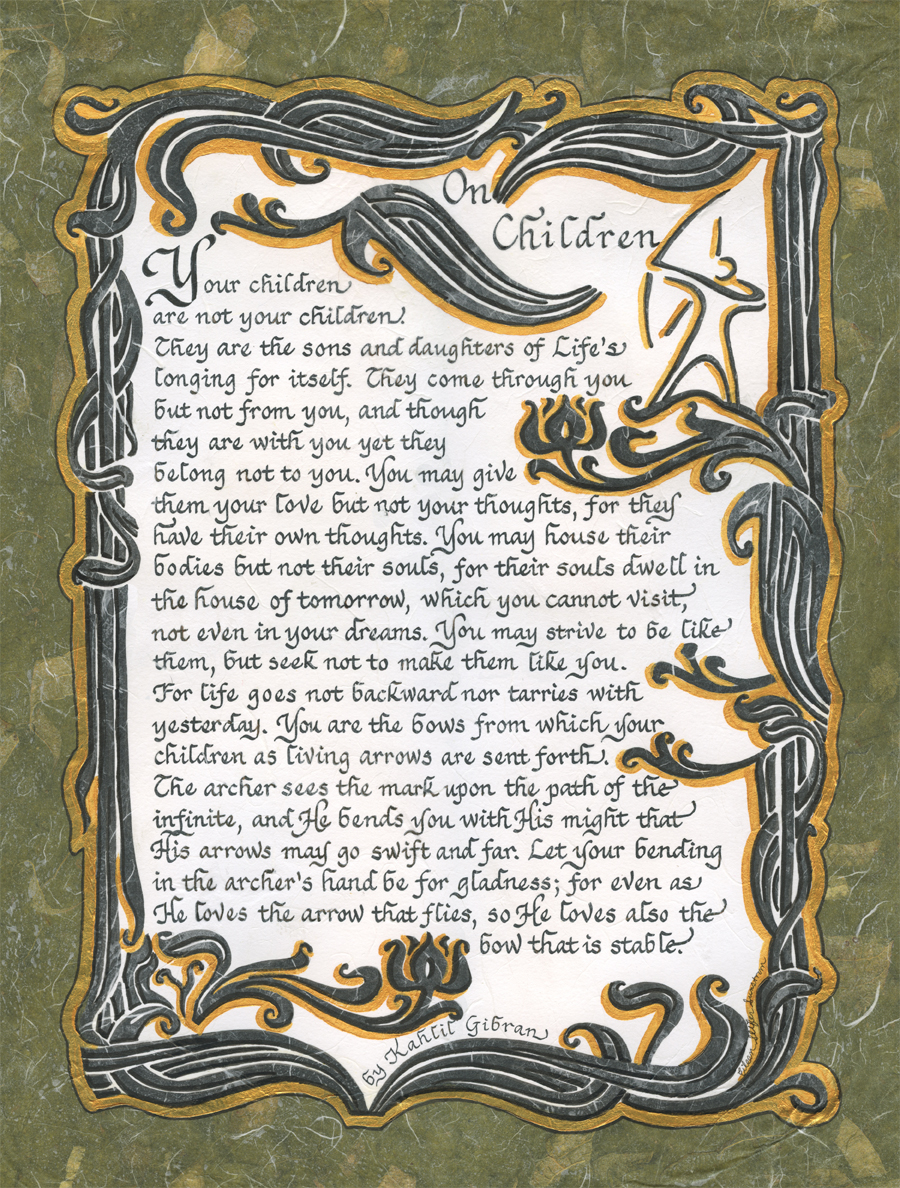 On
Children
Your children
are not your children.
They are the sons and daughters of Life's
longing for itself. They come through you
but not from you, and though
they are with you yet they
belong not to you. You may give
them your love but not your thoughts, for they
have their own thoughts. You may house their
bodies but not their souls, for their souls dwell in
the house of tomorrow, which you cannot visit,
not even in your dreams. You may strive to be like
them, but seek not to make them like you.
For life goes not backward nor tarries with
yesterday. You are the bows from which your
children as living arrows are sent forth.
The archer sees the mark upon the path of the
infinite, and He bends you with His might that
His arrows may go swift and far. Let your bending
in the archer's hand be for gladness; for even as
He loves the arrow that flies, so He loves also the
bow that is stable.
by Kahlil Gibran